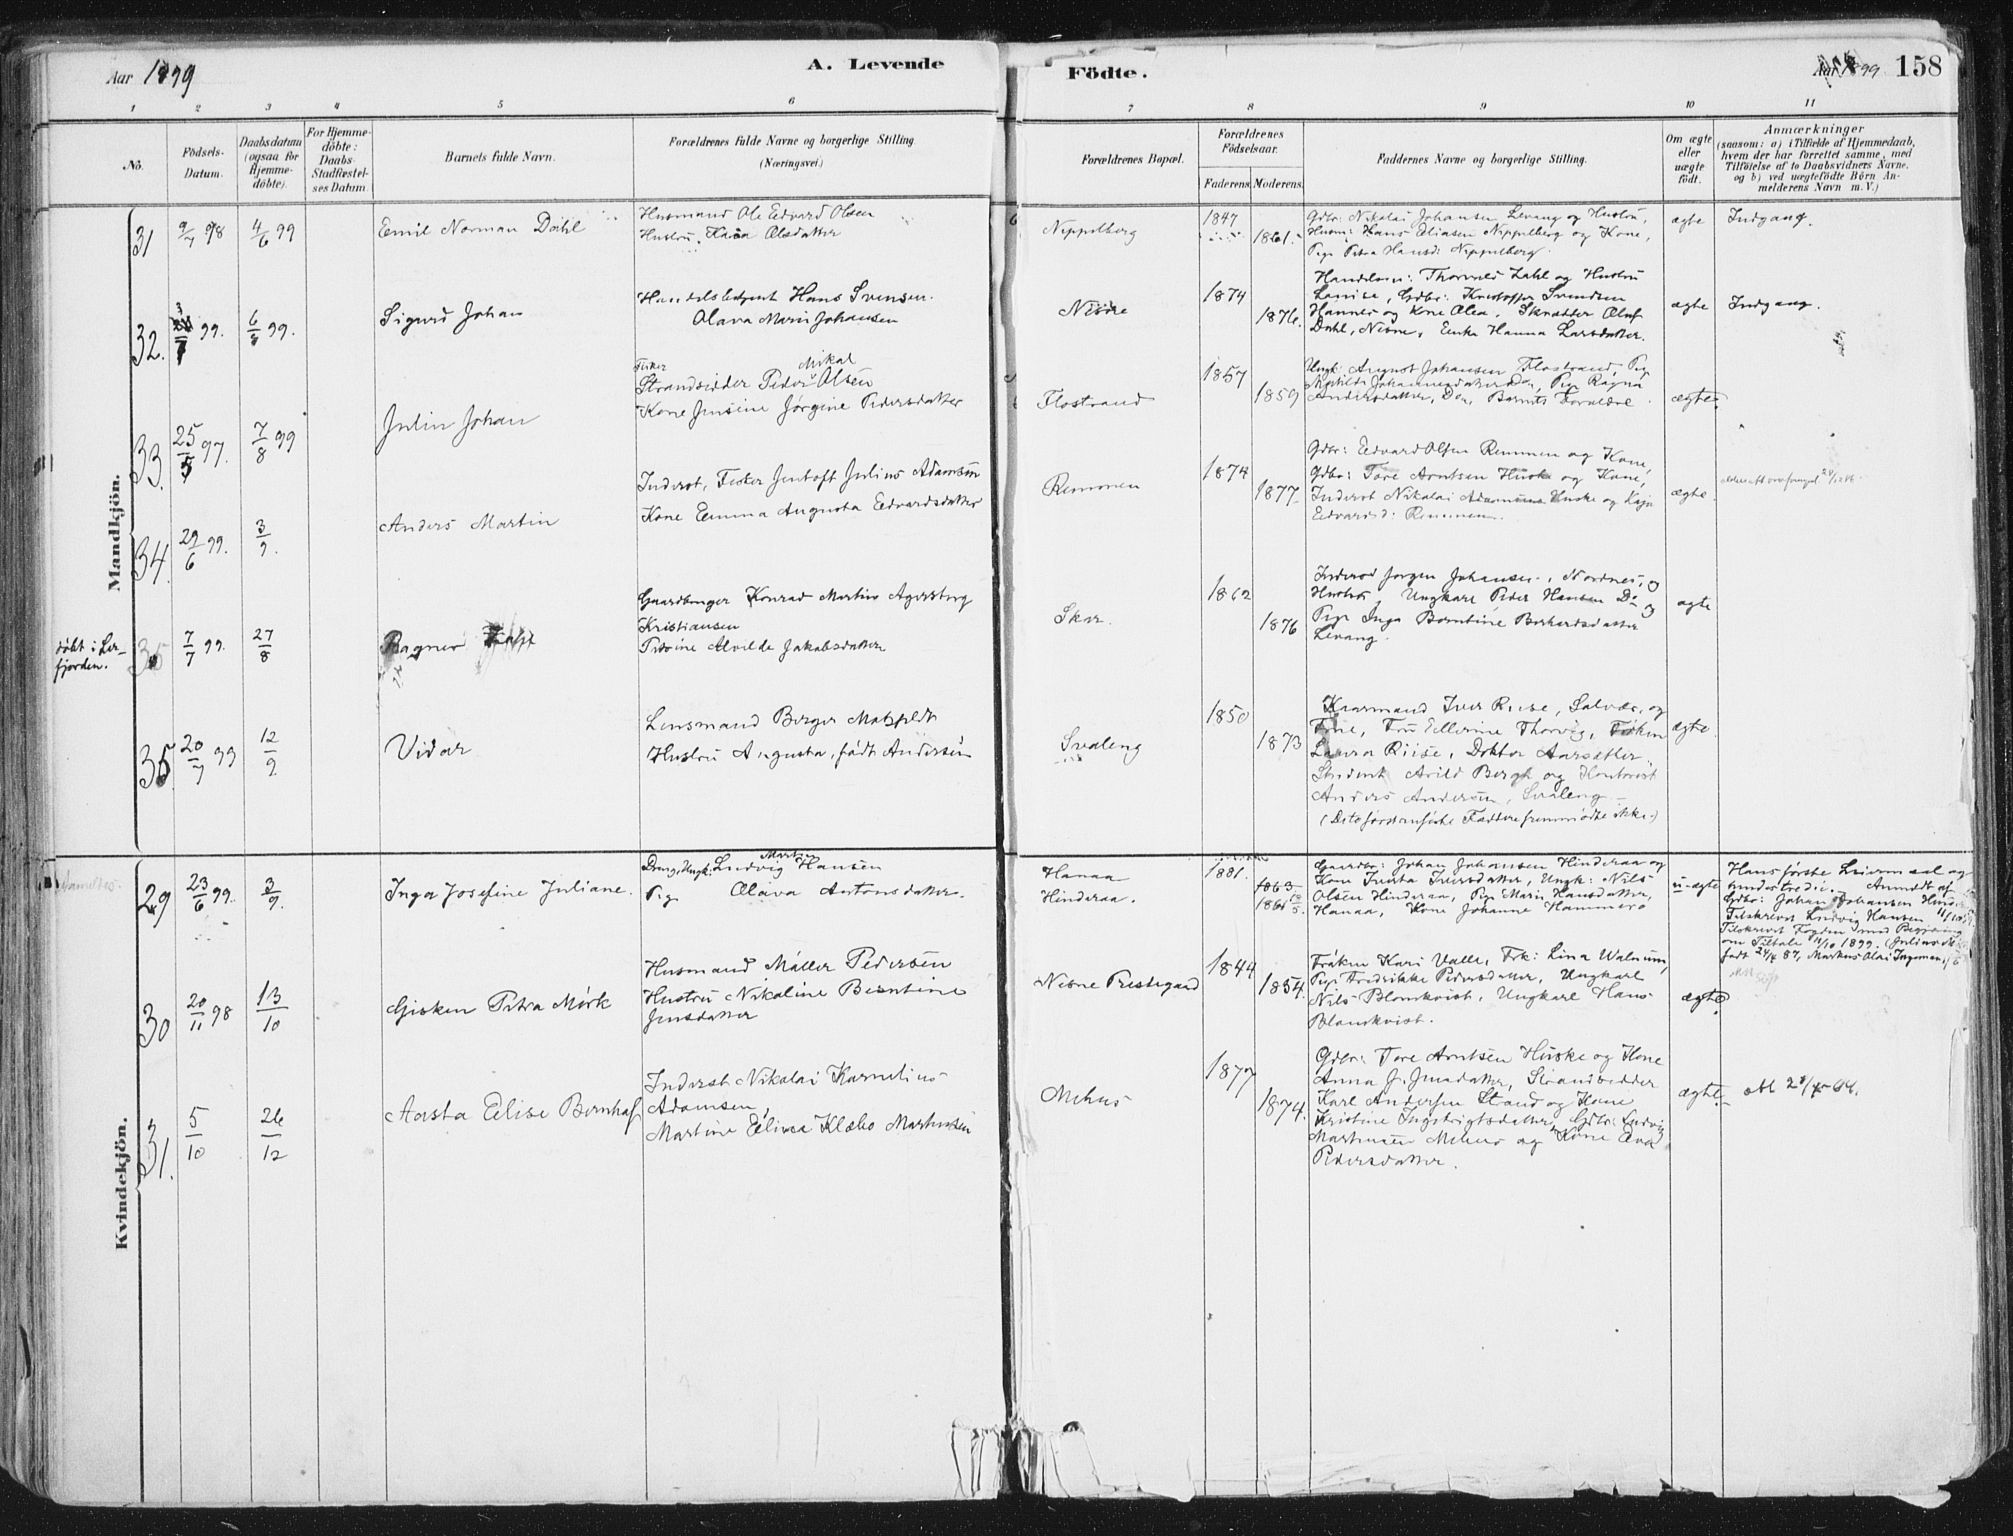 Aar 1899
A. Levende
Födte.
Aar 1899
158
1 2 3 4 5 6 7 8 9 10 11
No.
Födsels-
Datum.
Daabsdatum
(ogsaa for
Hjemme-
döbte).
For Hjemme-
döbte:
Daabs-
Stadfæstel-
ses Datum
Barnets fulde Navn.
Forældrenes fulde Navne og borgerlige Stilling
(Næringsvei.)
Forældrenes Bopæl.
Forældrenes
Födselsaar.
Faderens.
Moderens.
Faddernes Navne og borgerlige Stilling.
Om ægte
eller
uægte
födt.
Anmærkninger
(saasom: a) i Tilfælde af Hjemmedaab,
hvem der har forrettet samme, med
Tilföielse af to Daabsvidners Navne,
og b) ved uægtefödte Börn An-
melderens Navn m. V.)
Mandkjön.
31
9/7 98
4/6 99
Emil Norman Dahl
Husmand Ole Edvard Olsen
Hustru Olsdatter
Nippelberg
1847
1861.
Gdbr: Nikolai Johansen Levang og Hustru,
Husm: Hans Eliasen Nippelberg og Kone,
Pige Petra Hansd: Nippelberg.
ægte
Indgang.
32.
99.
6/ 99.
Sigurd Johan
Handelsbetjent Hans Svensen.
Olava Marie Johansen
Nesne
1874
1876.
Handelsm: Thorvald Zahl og Hustru
Louise, Gdbr: Kristoffer Svendsen
Hannes og Kone Olea, Skrædder Oluf
Dahl, Nesne, Enke Hanna Larsdatter.
ægte
Indgang.
33.
25/5 97.
7/8 99
Julin Johan
Fisker
Strandsidder Peder Mikal Olsen
Kone Jensine Jørgine Pedersdatter
Flostrand
1857
1859
Ungk: August Johansen Flostrand, Pige
Matilde Johannesdatter Do, Pige Ragna
Andersdatter, Do, Barnets Forældre
ægte.
34.
29/6 99.
3/9.
Anders Martin
Inderst, Fisker Jentoft Julius Adamsen
Kone Emma Augusta Edvardsdatter
Remmen
1874
1877
Gdbr: Edvard Olsen Remmen og Kone,
Gdbr: Tore Arntsen Huske og Kone,
Inderst Nikolai Adamsen Huske og Kaja
Edvardsd: Remmen.
ægte.
døbt i Ler-
fjorden.
35
7/7 99.
27/8
Ragnar
Gaardbruger Konrad Martin Agersborg
Kristiansen
Petrine Alvilde Jakobsdatter
Skar.
1862
1876
Inderst Jørgen Johansen, Nordnes, og
Hustru, Ungkarl Peder Hansen Do og
Pige Inga Berntine Berhardsdatter
Levang.
ægte
35
20/7 99
12/9
Vidar
Lensmand Birger Motzfeldt
Hustru Augusta, født Andersen
Svaleng
1850
1873
Kaarmand Iver Riise, Solvær, og
Frue, Fru Ellerine Thorvig, Frøken
Laura Riise, Doktor Aarsether
Student Arild Bergh og Kontorist
Anders Andersen, Svaleng
(De to førstanførte Faddere fremmødte ikke.)
ægte.
Kvindekjön.
29
23/6 99.
3/9.
Inga Josefine Juliane.
Dreng, Ungk: Ludvig Martin Hansen
Pige Olava Antonsdatter.
Hanaa
Hinderaa.
1881.
1863
1861
Gaardbr: Johan Johansen Hinderaa og
Kone Iverta Iversdatter, Ungk: Nils
Olsen Hinderaa, Pige Marie Hansdatter,
Hanaa, Kone Johanne Hammerø
uægte
Hans første Leiermaal og
hendes tredie. Anmeldt af
Gdbr: Johan Johansen Hinder
Tilskrevet Ludvig Hansen 11/10
Tilskrevet Fogden med Begjæring
om Tiltale 11/10 1899. (Julius
født 24/4 87, Markus Olai Ingeman,
30
20/11 98
13/10
Gisken Petra Mørk
Husmand Møller Pedersen
Hustru Nikoline Berntine
Jensdatter
Nesne Prestegaard
1844
1854.
Frøken Kari Valle, Frk: Lina Walnum,
Pige Fredrikke Pedersdatter, Ungkarl
Nils Blomkvist, Ungkarl Hans
Blomkvist.
ægte.
31.
5/10
26/12
Aasta Elise Bernhof
Inderst Nikolai Kornelius
Adamsen,
Martine Elisea Klæbo Martinsen
Mehus
1877
1874.
Gdbr: Tore Arntsen Huske og Kone
Anna J. Jensdatter, Strandsidder
Karl Andersen Strand og Kone
Kristine Ingebrigtsdatter, Gdbr: Ludvig
Martinsen Mehus og Kone Ova
Pedersdatter.
ægte.